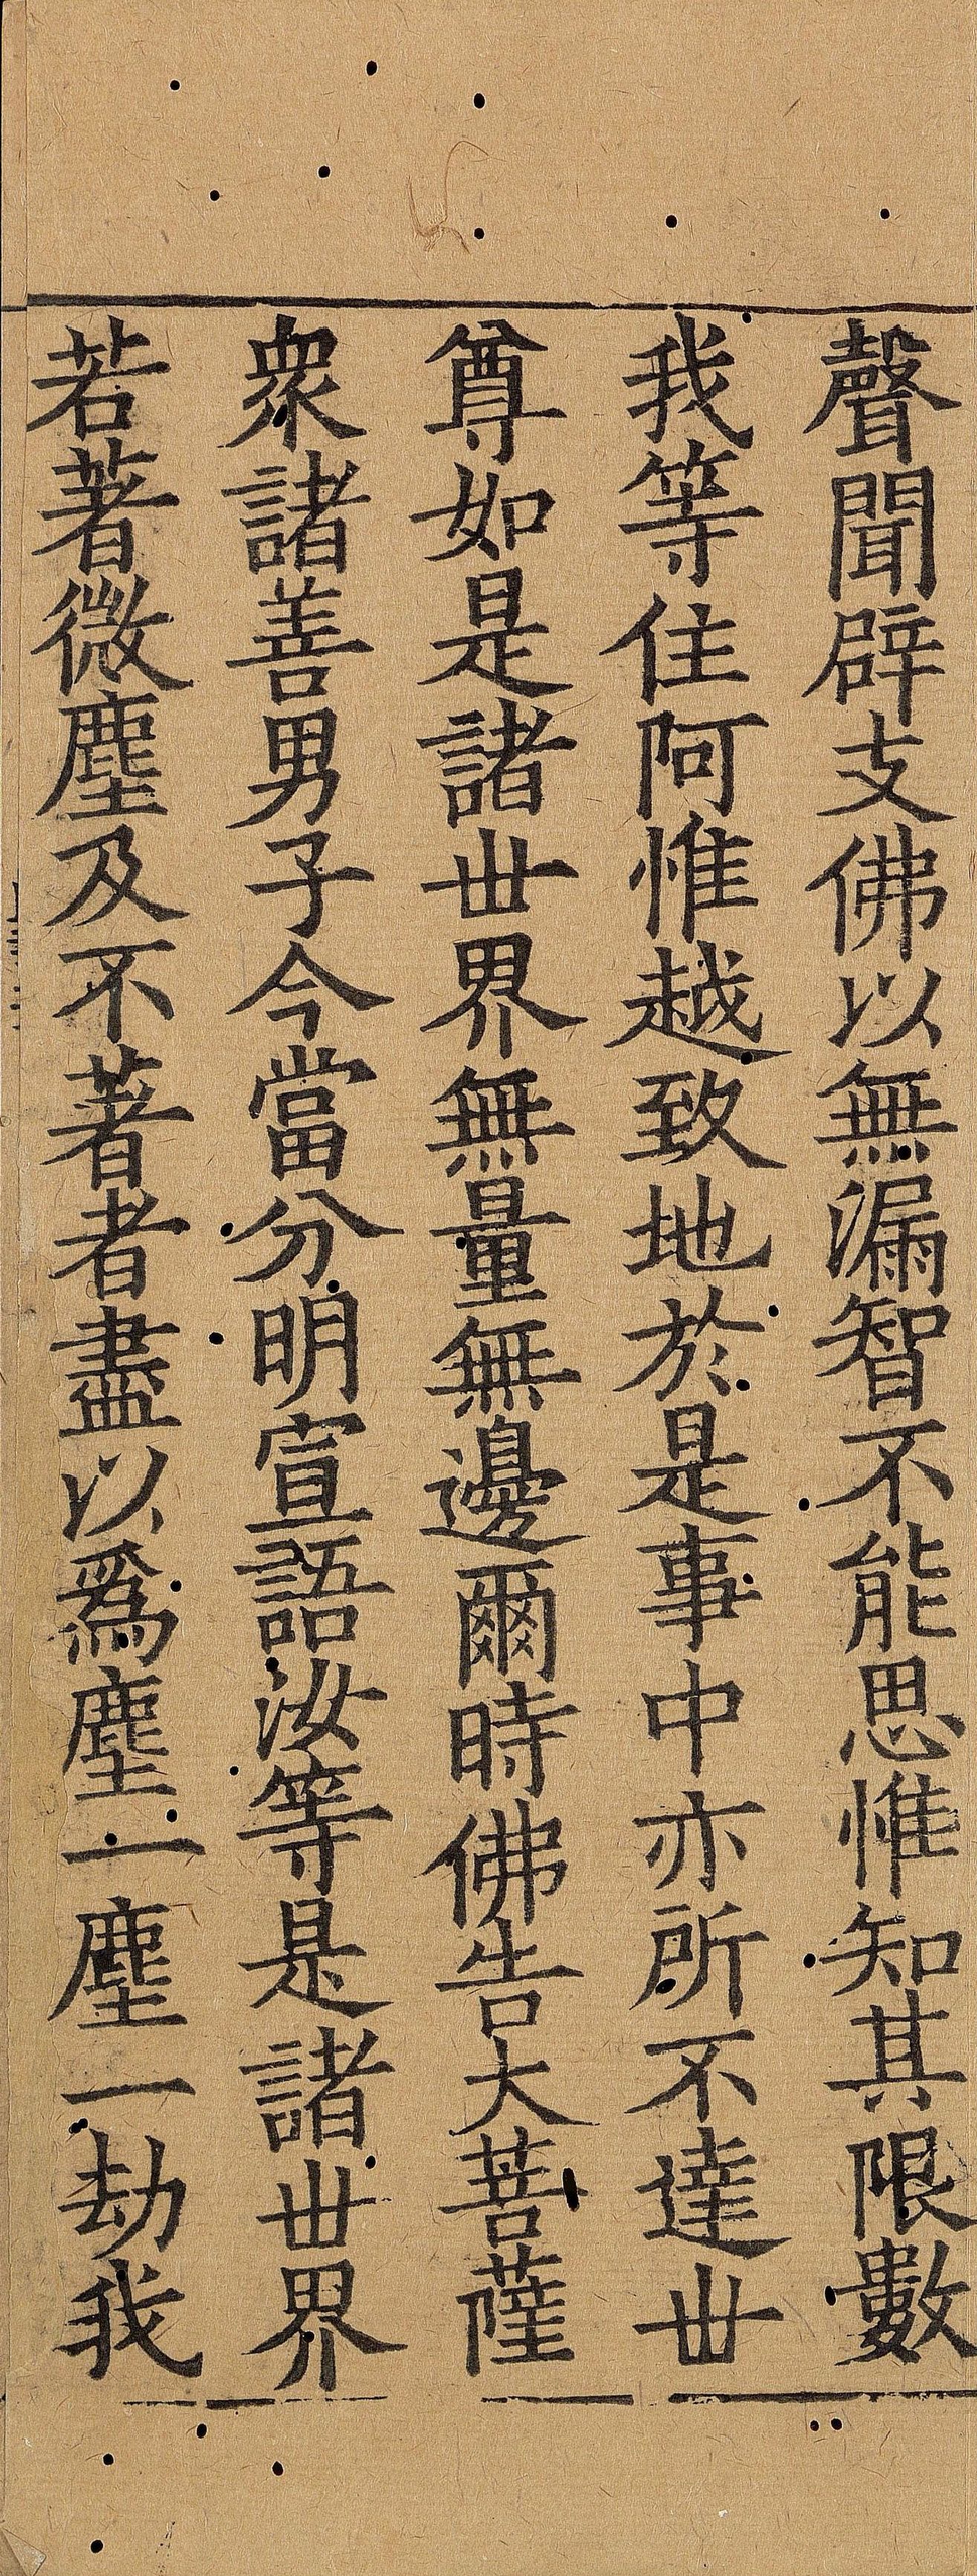 聲聞辟支佛以無漏智不能思惟知其限數
我等住阿惟越致地於是事中亦所不達丗
尊如是諸丗界無量無邊爾時佛告大菩薩
衆諸善男子今當分明宣語汝等是諸丗界
若著微塵及不著者盡以爲塵一塵一劫我